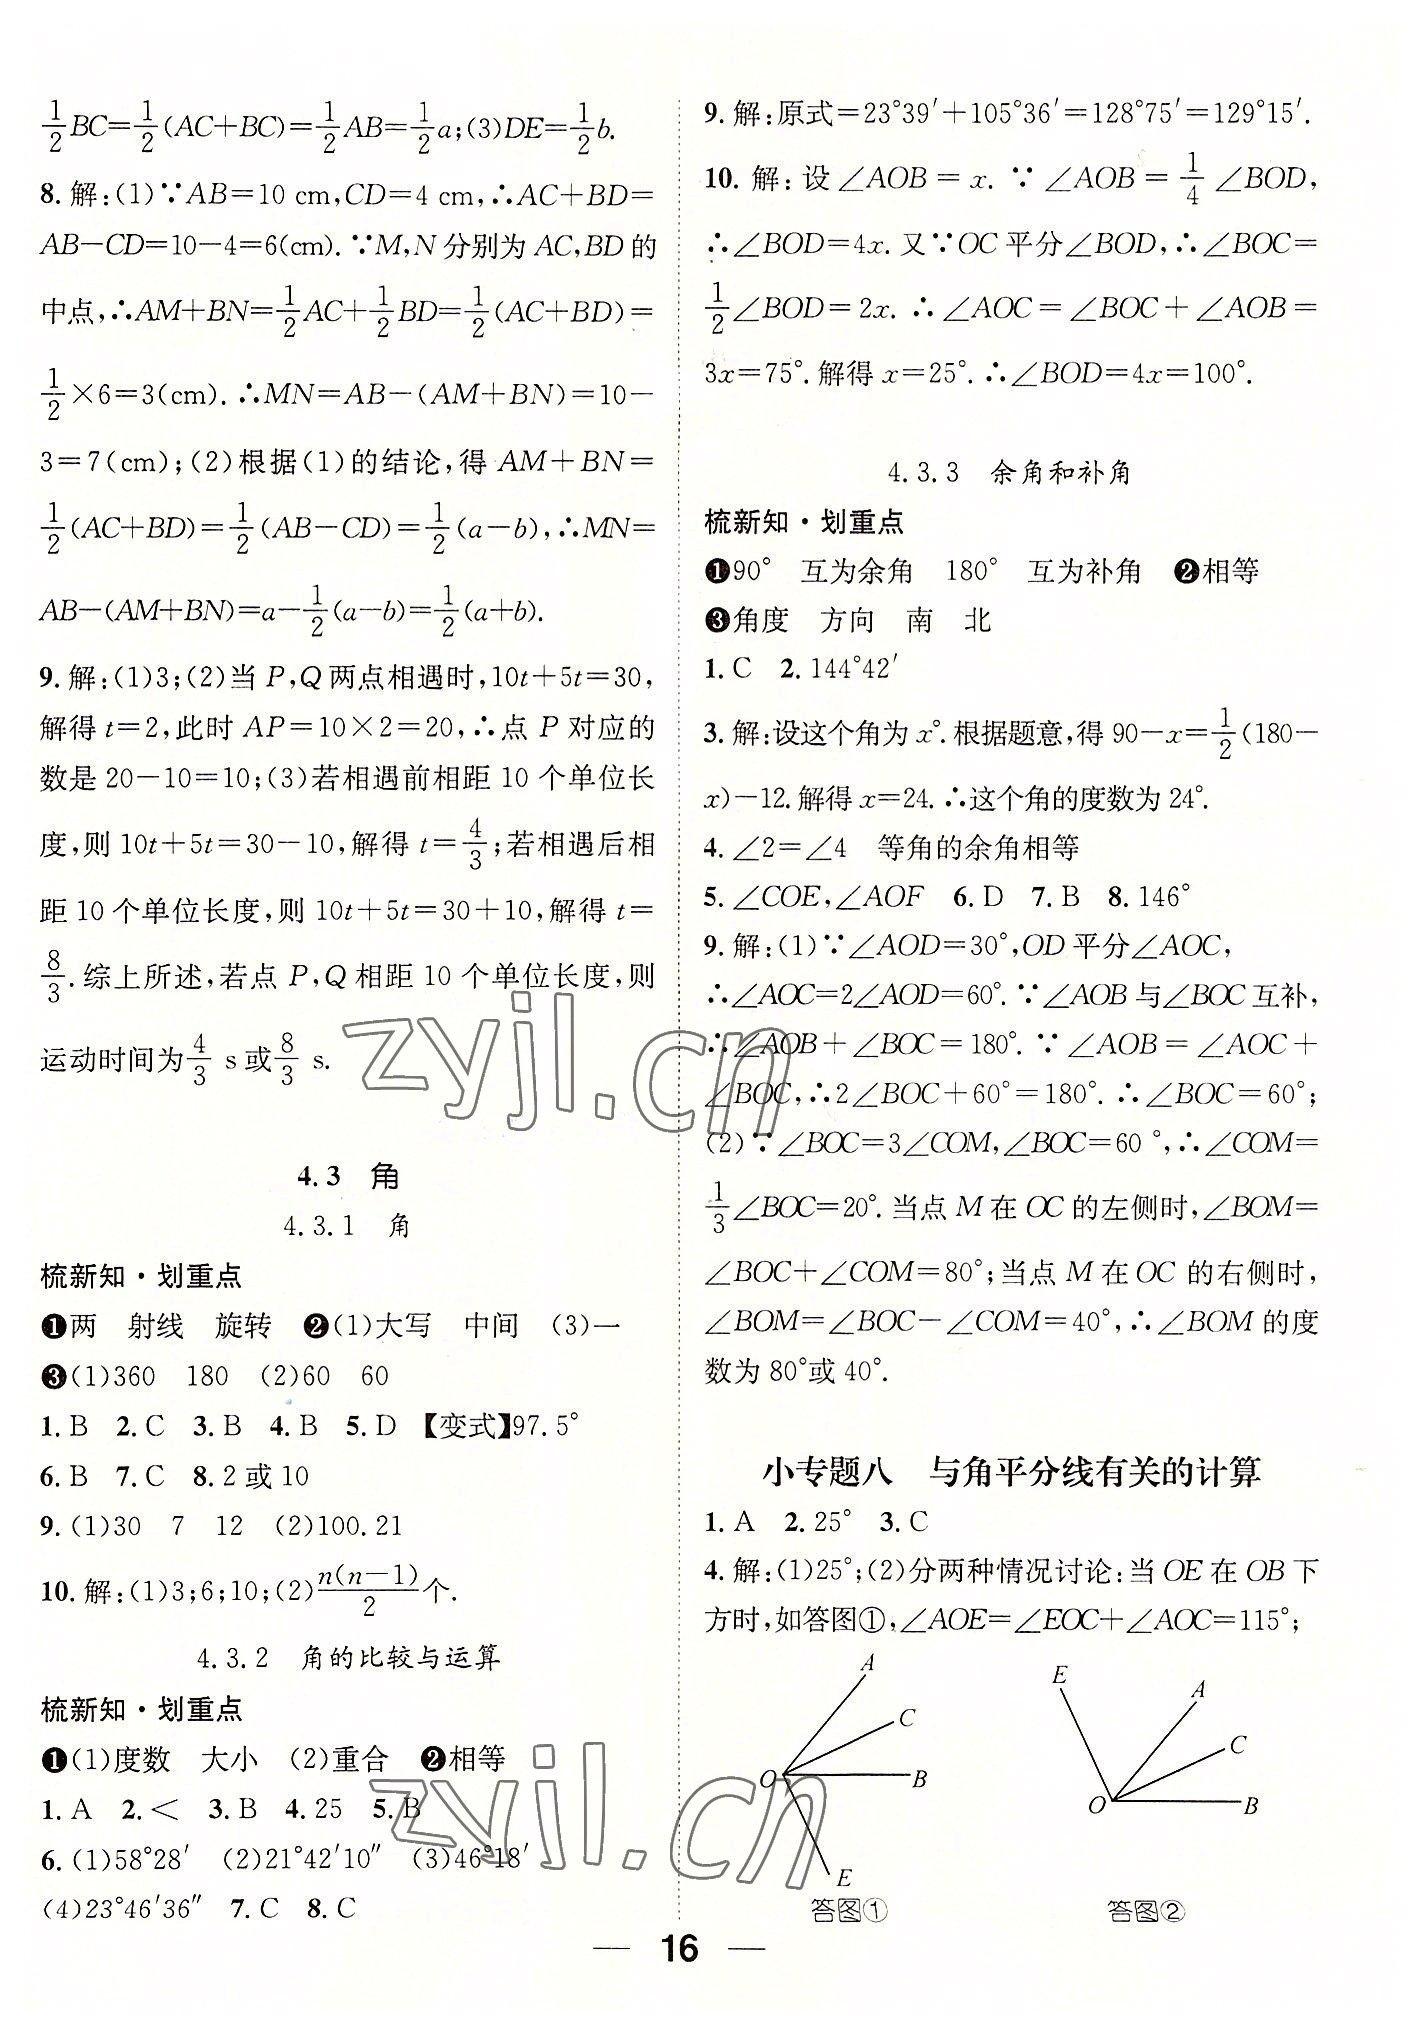 1/2 BC=1/2(AC+BC)=1/2 AB=1/2 a;(3)DE=1/2 b.
8. 解:(1)∵AB=10 cm,CD=4 cm,∴AC+BD=
AB-CD=10-4=6(cm).∵M,N分别为AC,BD的
中点,∴AM+BN=1/2 AC+1/2 BD=1/2(AC+BD)=
1/2×6=3(cm).∴MN=AB-(AM+BN)=10-
3=7(cm);(2)根据(1)的结论,得AM+BN=
1/2(AC+BD)=1/2(AB-CD)=1/2(a-b),∴MN=
AB-(AM+BN)=a-1/2(a-b)=1/2(a+b).
9. 解:(1)3;(2)当P,Q两点相遇时,10t+5t=30,
解得t=2,此时AP=10×2=20,∴点P对应的
数是20-10=10;(3)若相遇前相距10个单位长
度,则10t+5t=30-10,解得t=4/3;若相遇后相
距10个单位长度,则10t+5t=30+10,解得t=
8/3.综上所述,若点P,Q相距10个单位长度,则
运动时间为4/3 s或8/3 s.
4.3 角
4.3.1 角
梳新知·划重点
❶两 射线 旋转 ❷(1)大写 中间 (3)一
❸(1)360 180 (2)60 60
1. B 2. C 3. B 4. B 5. D 【变式】97.5°
6. B 7. C 8. 2或10
9. (1)30 7 12 (2)100.21
10. 解:(1)3;6;10;(2)n(n-1)/2个.
4.3.2 角的比较与运算
梳新知·划重点
❶(1)度数 大小 (2)重合 ❷相等
1. A 2. < 3. B 4. 25 5. B
6. (1)58°28′ (2)21°42′10″ (3)46°18′
(4)23°46′36″ 7. C 8. C
9. 解:原式=23°39′+105°36′=128°75′=129°15′.
10. 解:设∠AOB=x.∵∠AOB=1/4∠BOD,
∴∠BOD=4x.又∵OC平分∠BOD,∴∠BOC=
1/2∠BOD=2x.∴∠AOC=∠BOC+∠AOB=
3x=75°.解得x=25°.∴∠BOD=4x=100°.
4.3.3 余角和补角
梳新知·划重点
❶90° 互为余角 180° 互为补角 ❷相等
❸角度 方向 南 北
1. C 2. 144°42′
3. 解:设这个角为x°.根据题意,得90-x=1/2(180-
x)-12.解得x=24.∴这个角的度数为24°.
4. ∠2=∠4 等角的余角相等
5. ∠COE,∠AOF 6. D 7. B 8. 146°
9. 解:(1)∵∠AOD=30°,OD平分∠AOC,
∴∠AOC=2∠AOD=60°.∵∠AOB与∠BOC互补,
∴∠AOB+∠BOC=180°.∵∠AOB=∠AOC+
∠BOC,∴2∠BOC+60°=180°.∴∠BOC=60°;
(2)∵∠BOC=3∠COM,∠BOC=60°,∴∠COM=
1/3∠BOC=20°.当点M在OC的左侧时,∠BOM=
∠BOC+∠COM=80°;当点M在OC的右侧时,
∠BOM=∠BOC-∠COM=40°,∴∠BOM的度
数为80°或40°.
小专题八 与角平分线有关的计算
1. A 2. 25° 3. C
4. 解:(1)25°;(2)分两种情况讨论:当OE在OB下
方时,如答图①,∠AOE=∠EOC+∠AOC=115°;
A
C
O
B
E
答图①
E
A
C
O
B
答图②
— 16 —
zyjl.cn
zyjl.cn